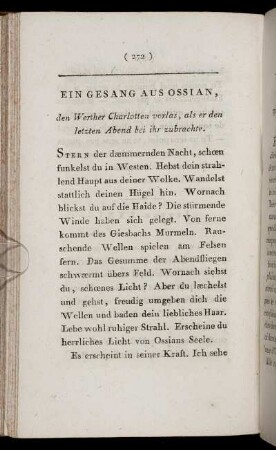 ( 272 )
EIN GESANG AUS OSSIAN,
den Werther Charlotten vorlas, als er den
letzten Abend bei ihr zubrachte.
STERN der dæmmernden Nacht, schœn
funkelst du in Westen. Hebst dein strah-
lend Haupt aus deiner Wolke. Wandelst
stattlich deinen Hügel hin. Wornach
blickst du auf die Haide? Die stürmende
Winde haben sich gelegt. Von ferne
kommt des Giesbachs Murmeln. Rau-
schende Wellen spielen am Felsen
fern. Das Gesumme der Abendfliegen
schwærmt übers Feld. Wornach siehst
du, schœnes Licht? Aber du læchelst
und gehst, freudig umgeben dich die
Wellen und baden dein liebliches Haar.
Lebe wohl ruhiger Strahl. Erscheine du
herrliches Licht von Ossians Seele.
Es erscheint in seiner Kraft. Ich sehe